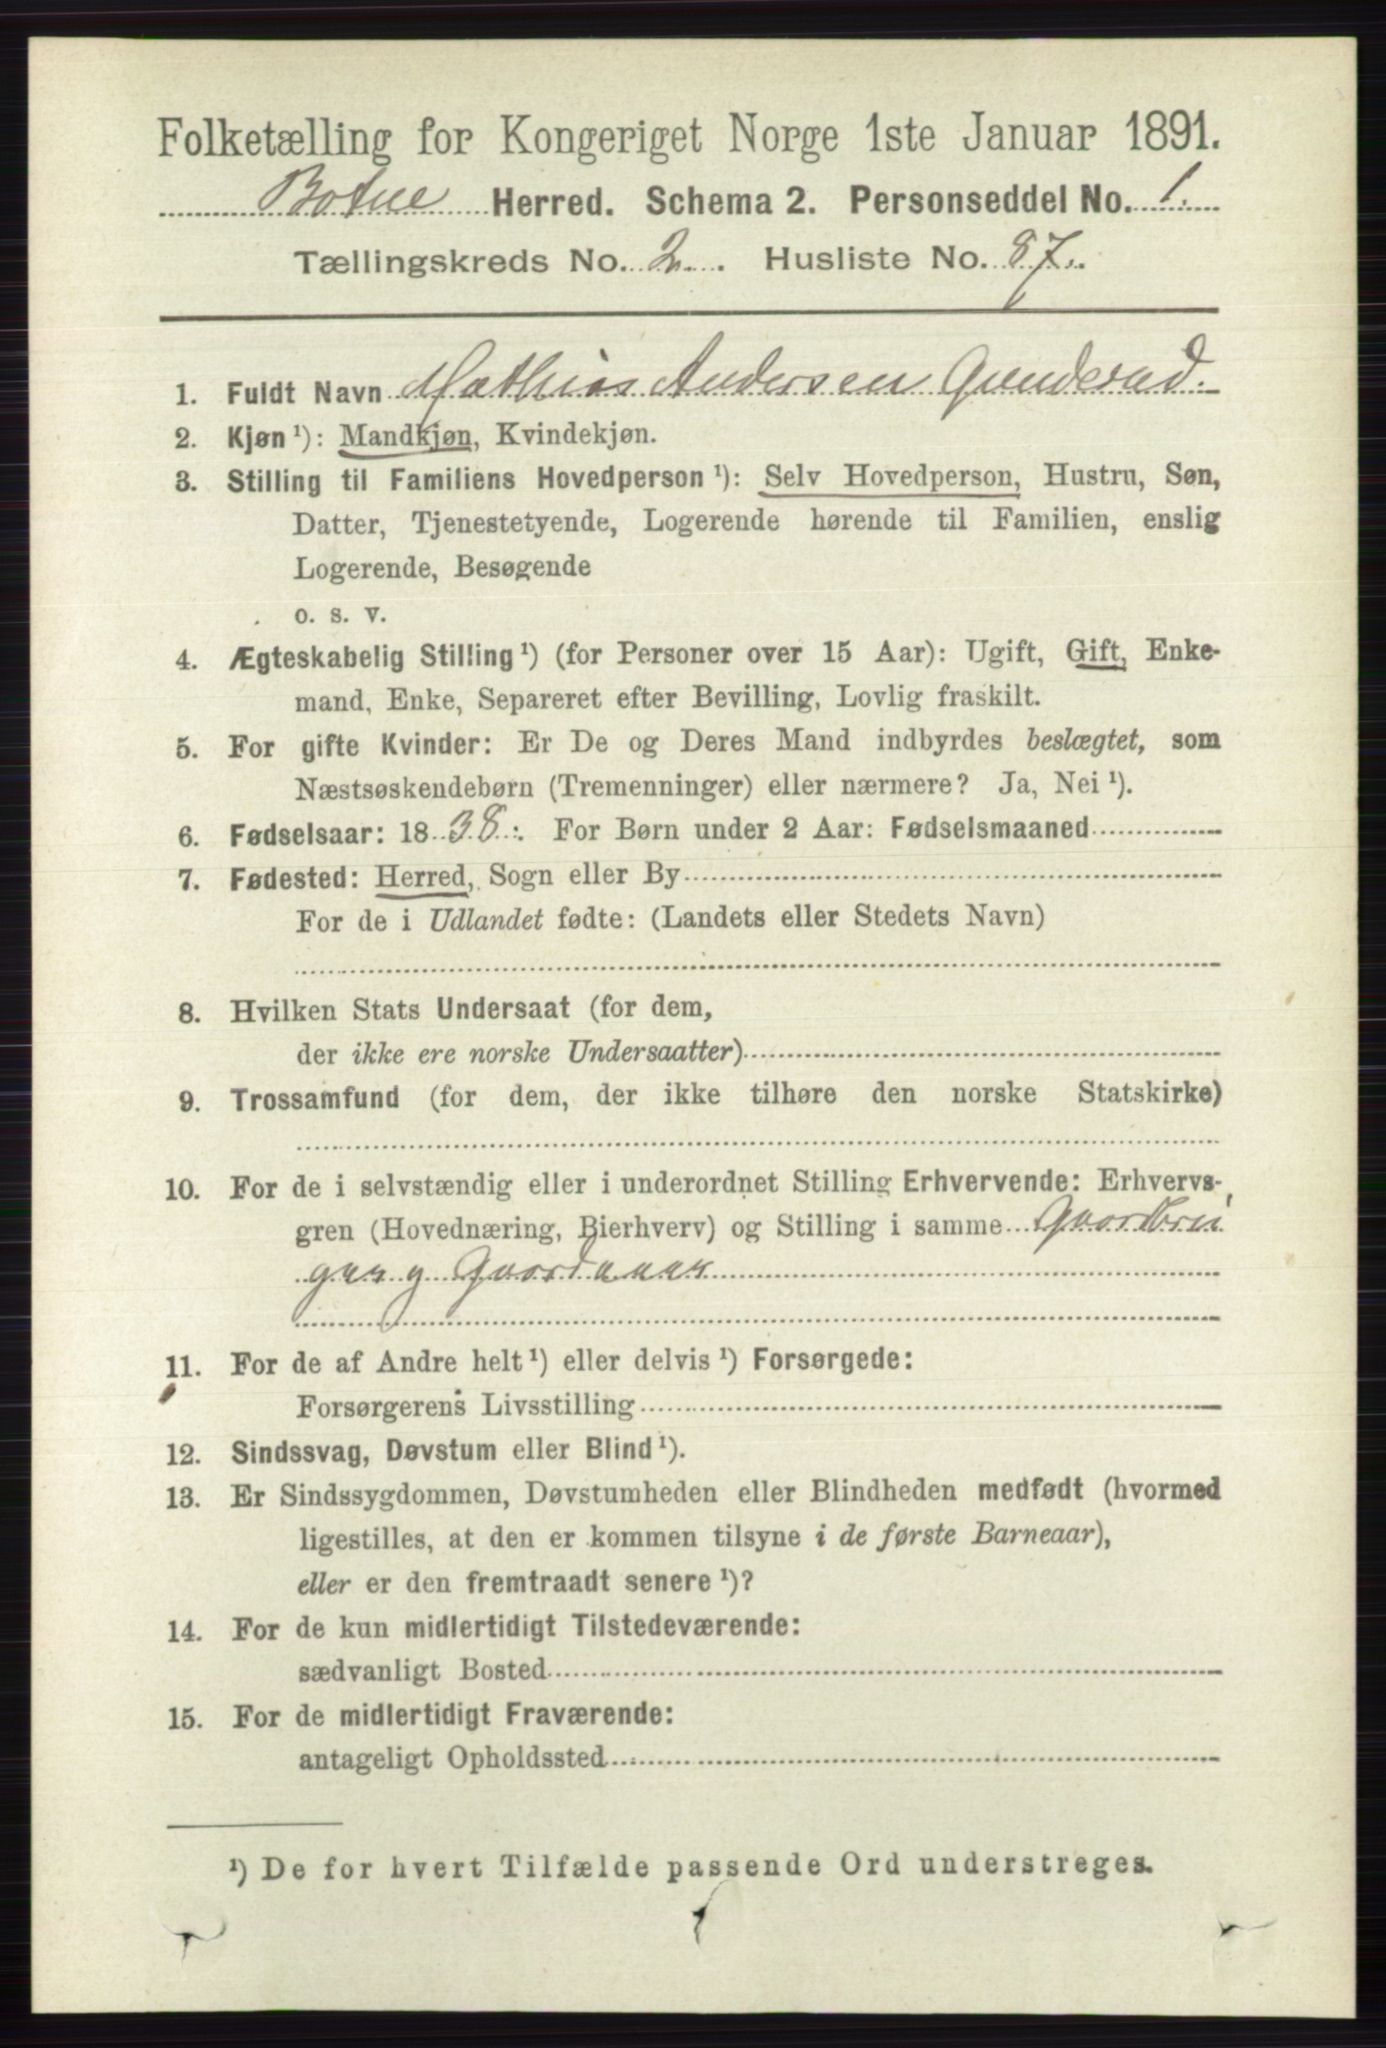 Folketælling for Kongeriget Norge 1ste Januar 1891.
Botne Herred. Schema 2. Personseddel No. 1.
Tællingskreds No. 2. Husliste No. 87.
1. Fuldt Navn Mathias Andersen Gunderud.
2. Kjøn ¹): Mandkjøn, Kvindekjøn.
3. Stilling til Familiens Hovedperson ¹): Selv Hovedperson, Hustru, Søn,
Datter, Tjenestetyende, Logerende hørende til Familien, enslig
Logerende, Besøgende
o. s. v.
4. Ægteskabelig Stilling ¹) (for Personer over 15 Aar): Ugift, Gift, Enke-
mand, Enke, Separeret efter Bevilling, Lovlig fraskilt.
5. For gifte Kvinder: Er De og Deres Mand indbyrdes beslægtet, som
Næstsøskendebørn (Tremenninger) eller nærmere? Ja, Nei ¹).
6. Fødselsaar: 1838. For Børn under 2 Aar: Fødselsmaaned
7. Fødested: Herred, Sogn eller By
For de i Udlandet fødte: (Landets eller Stedets Navn)
8. Hvilken Stats Undersaat (for dem,
der ikke ere norske Undersaatter)
9. Trossamfund (for dem, der ikke tilhøre den norske Statskirke)
10. For de i selvstændig eller i underordnet Stilling Erhvervende: Erhvervs-
gren (Hovednæring, Bierhverv) og Stilling i samme Gaardbru
ger
11. For de af Andre helt ¹) eller delvis ¹) Forsørgede:
Forsørgerens Livsstilling
12. Sindssvag, Døvstum eller Blind ¹).
13. Er Sindssygdommen, Døvstumheden eller Blindheden medfødt (hvormed
ligestilles, at den er kommen tilsyne i de første Barneaar),
eller er den fremtraadt senere ¹)?
14. For de kun midlertidigt Tilstedeværende:
sædvanligt Bosted
15. For de midlertidigt Fraværende:
antageligt Opholdssted
¹) De for hvert Tilfælde passende Ord understreges.